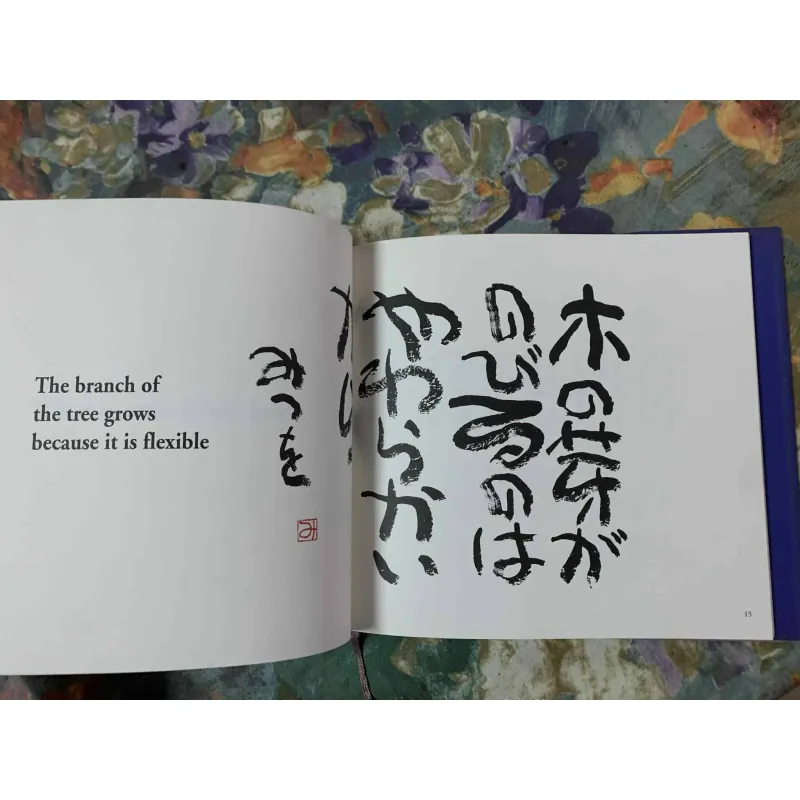 The branch of
the tree grows
because it is flexible
木の枝が
のびるのは
やわらかい
みつを
み
15